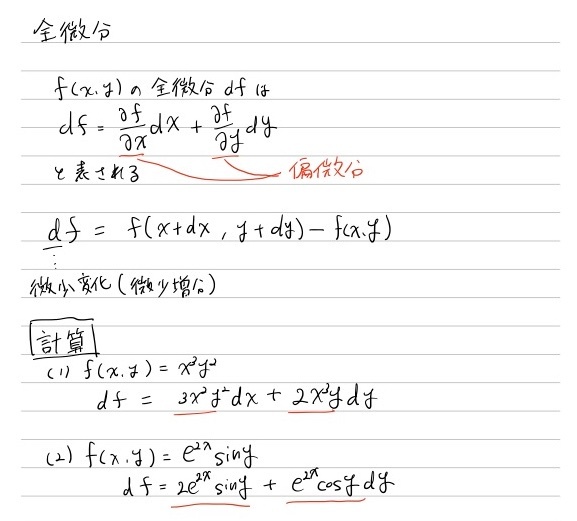 全微分
f(x,y)の全微分 df は
df = ∂f/∂x dx + ∂f/∂y dy
と表される
偏微分
df = f(x+dx , y+dy) - f(x,y)
⋮
微少変化(微少増分)
計算
(1) f(x,y) = x³y²
df = 3x²y²dx + 2x³y dy
(2) f(x,y) = e²ˣ sin y
df = 2e²ˣ sin y + e²ˣ cos y dy